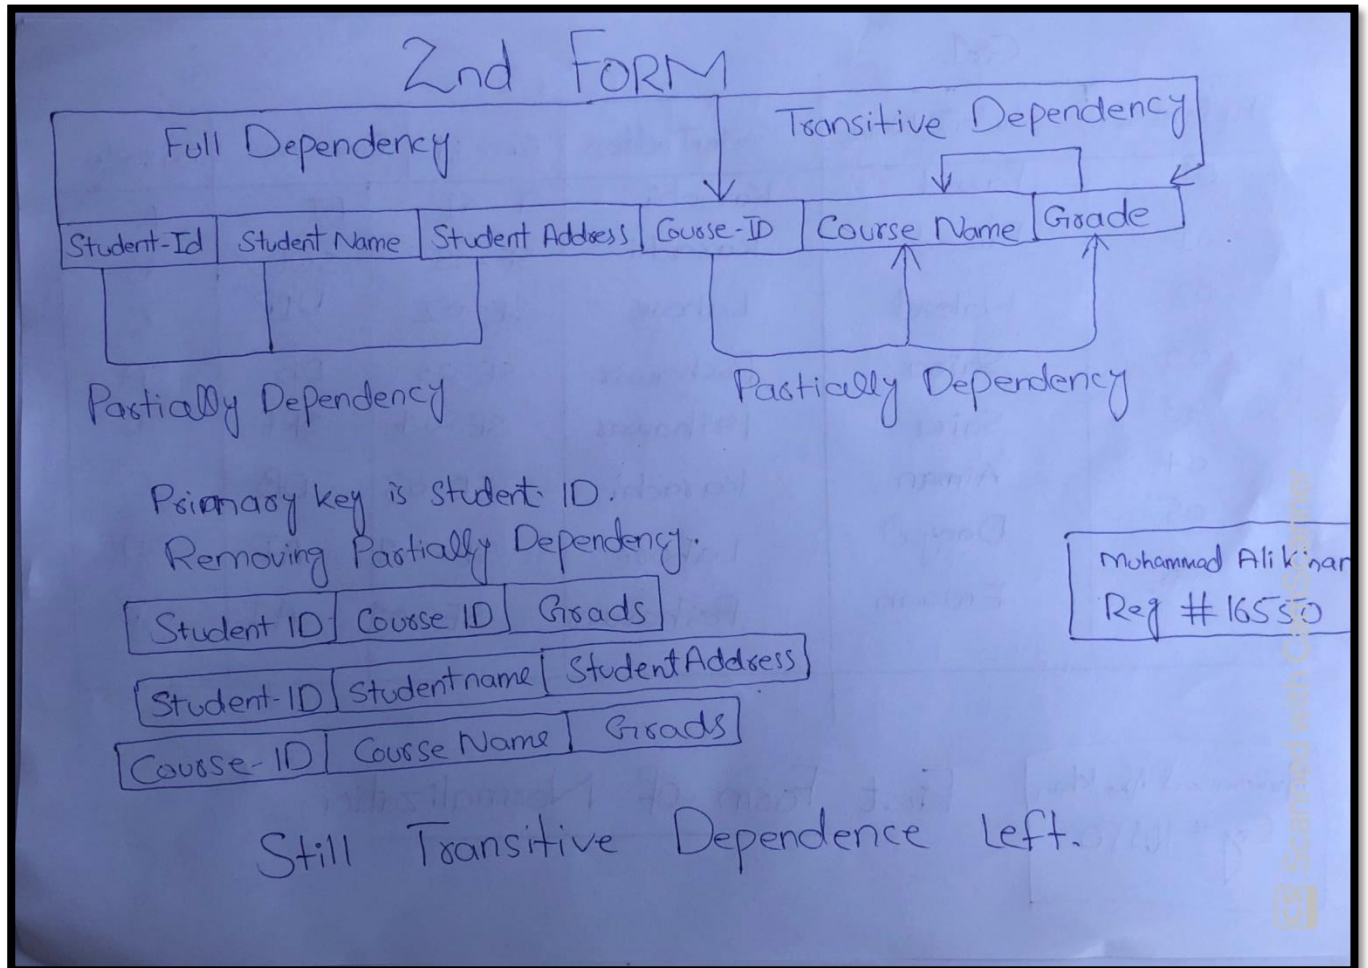 2nd FORM
Full Dependency
Transitive Dependency
Student-Id Student Name Student Address Course-ID Course Name Grade
Partially Dependency
Partially Dependency
Primary key is Student ID.
Removing Partially Dependency.
Muhammad Ali
Reg # 16550
Student ID Course ID Grads
Student-ID Studentname StudentAddress
Course-ID Course Name Grads
Still Transitive Dependence Left.
CS Scanned with CamScanner